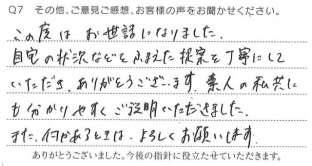 Q7 その他、ご意見ご感想、お客様の声をお聞かせください。
この度は お世話になりました。
自宅の状況などをふまえた提案を丁寧にして
いただき、ありがとうございます。素人の私共に
も分かりやすくご説明いただきました。
また、何かあるときは、よろしくお願いします。
ありがとうございました。今後の指針に役立たせていただきます。